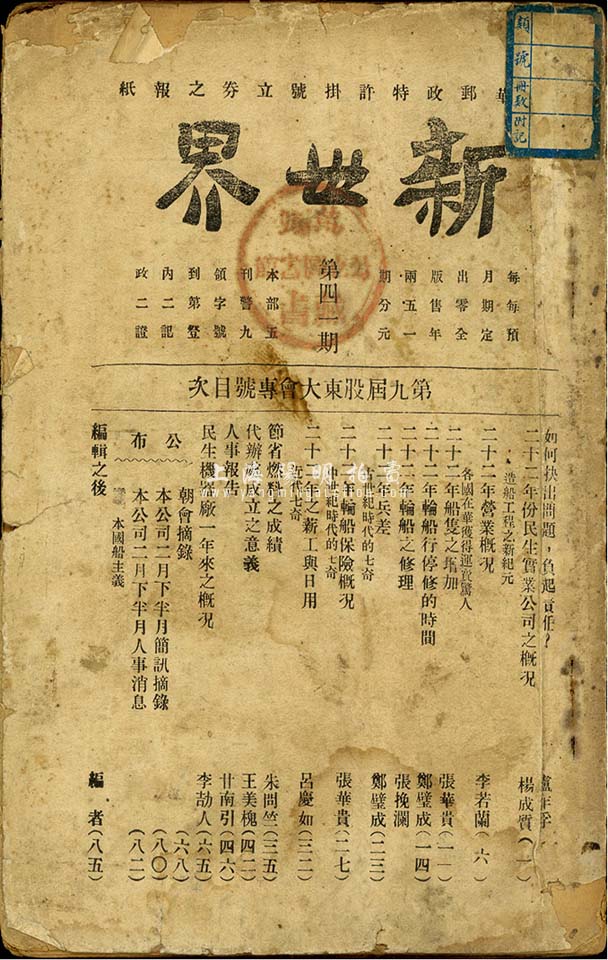 類號冊數附記
華郵政特許掛號立券之報紙
新世界
每月出版兩期
每期零售五分
預定全年一元
第四一期
本刊領到內政
部警字第二二
五九號登記證
第九屆股東大會專號目次
如何找出問題，負起責任？
二十二年份民生實業公司之概況 楊成質（一）
造船工程之新紀元
二十二年營業概況 李若蘭（六）
各國在華獲得運費驚人
二十二年船隻之增加 張華貴（一一）
二十二年輪船行停修的時間 鄭璧成（一四）
二十二年輪船之修理 張挽瀾
二十二年兵差 鄭璧成（二三）
古世紀時代的七奇
二十二年輪船保險概況 張華貴（二七）
中世紀時代的七奇
二十二年之薪工與日用 呂慶如（三二）
近代七奇
節省燃料之成績 朱問竺（三五）
代辦處成立之意義 王美槐（四二）
人事報告 甘南引（四六）
民生機器廠一年來之概況 李劼人（六五）
公布
朝會摘錄（六八）
本公司二月下半月簡訊摘錄（八〇）
本公司二月下半月人事消息（八二）
本國船主義
編輯之後 編者（八五）
上海陽明拍賣